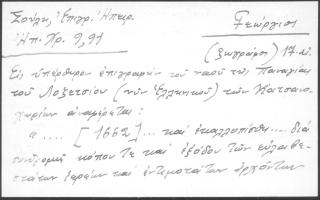 Σούλη, Ἐπιγρ. Ἠπειρ.
Ἠπ. Χρ. 9, 91
Γεώργιος
(ζωγράφος) 17. αἰ.
Εἰς ὑπέρθυρον ἐπιγραφὴν τοῦ ναοῦ τῆς Παναγίας
τοῦ Λοξετσίου (νῦν Ἑλληνικοῦ) τῶν Κατσανο-
χωρίων ἀναφέρεται:
«.... [1662]... καὶ ἐκαλλοπίσθη.... διὰ
συνδρομῆς κόπου τε καὶ ἐξόδου τῶν εὐλαβε-
στάτων ἱερέων καὶ ἐντιμοτάτων ἀρχόντων